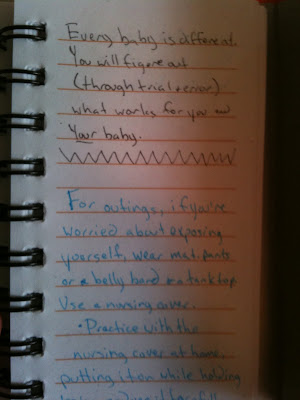 Every baby is different.
You will figere out
(through trial + error)
what works for you and
your baby.
For outings, if you're
worried about exposing
yourself, wear mat. pants
or a belly band + a tank top.
Use a nursing cover.
• Practice with the
nursing cover at home,
putting it on while holding